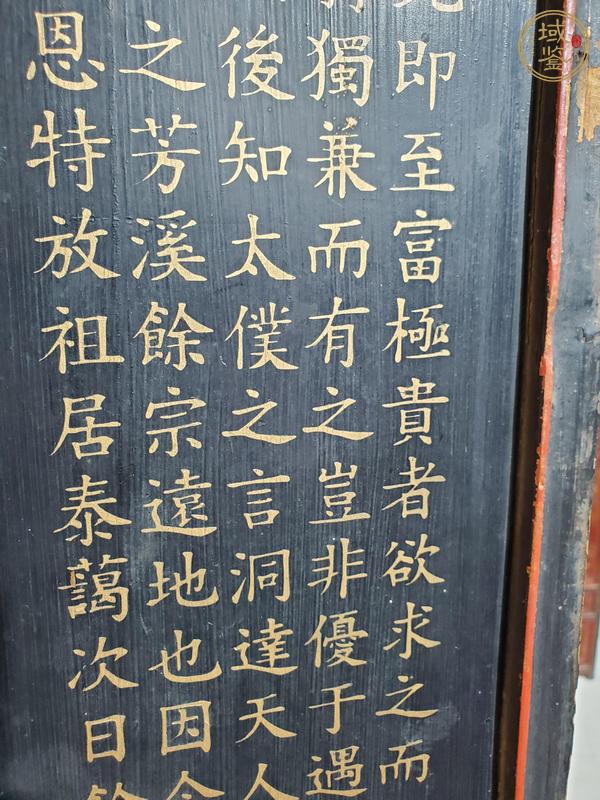 即至富極貴者欲求之而
獨兼而有之豈非優于遇
後知太僕之言洞達天人
之芳溪餘宗遠地也因令
恩特放祖居泰藹次日餘
域鉴